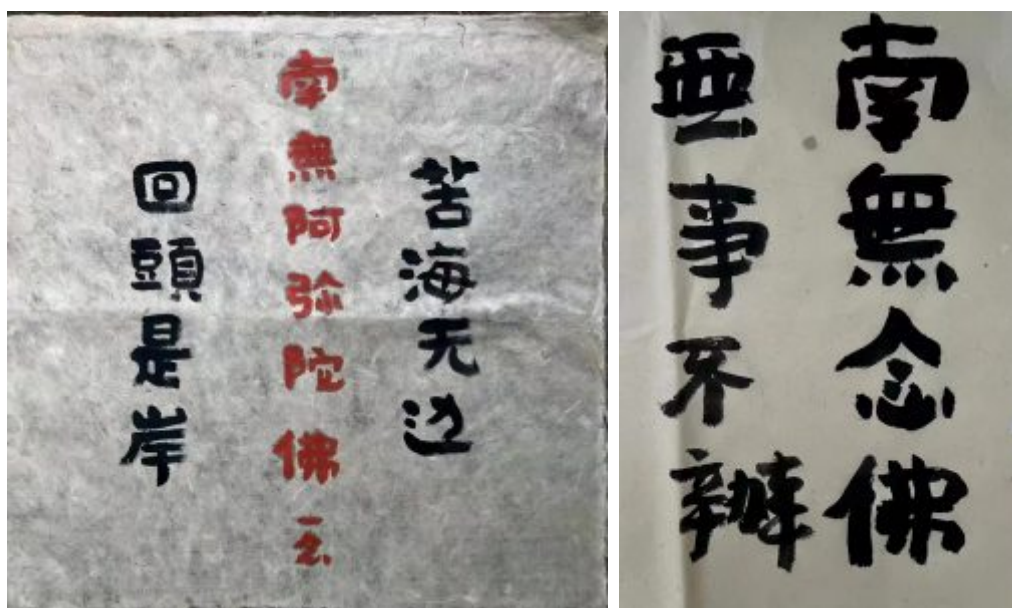 苦海无边
南無阿弥陀佛
回頭是岸
南無念佛
無事不辦